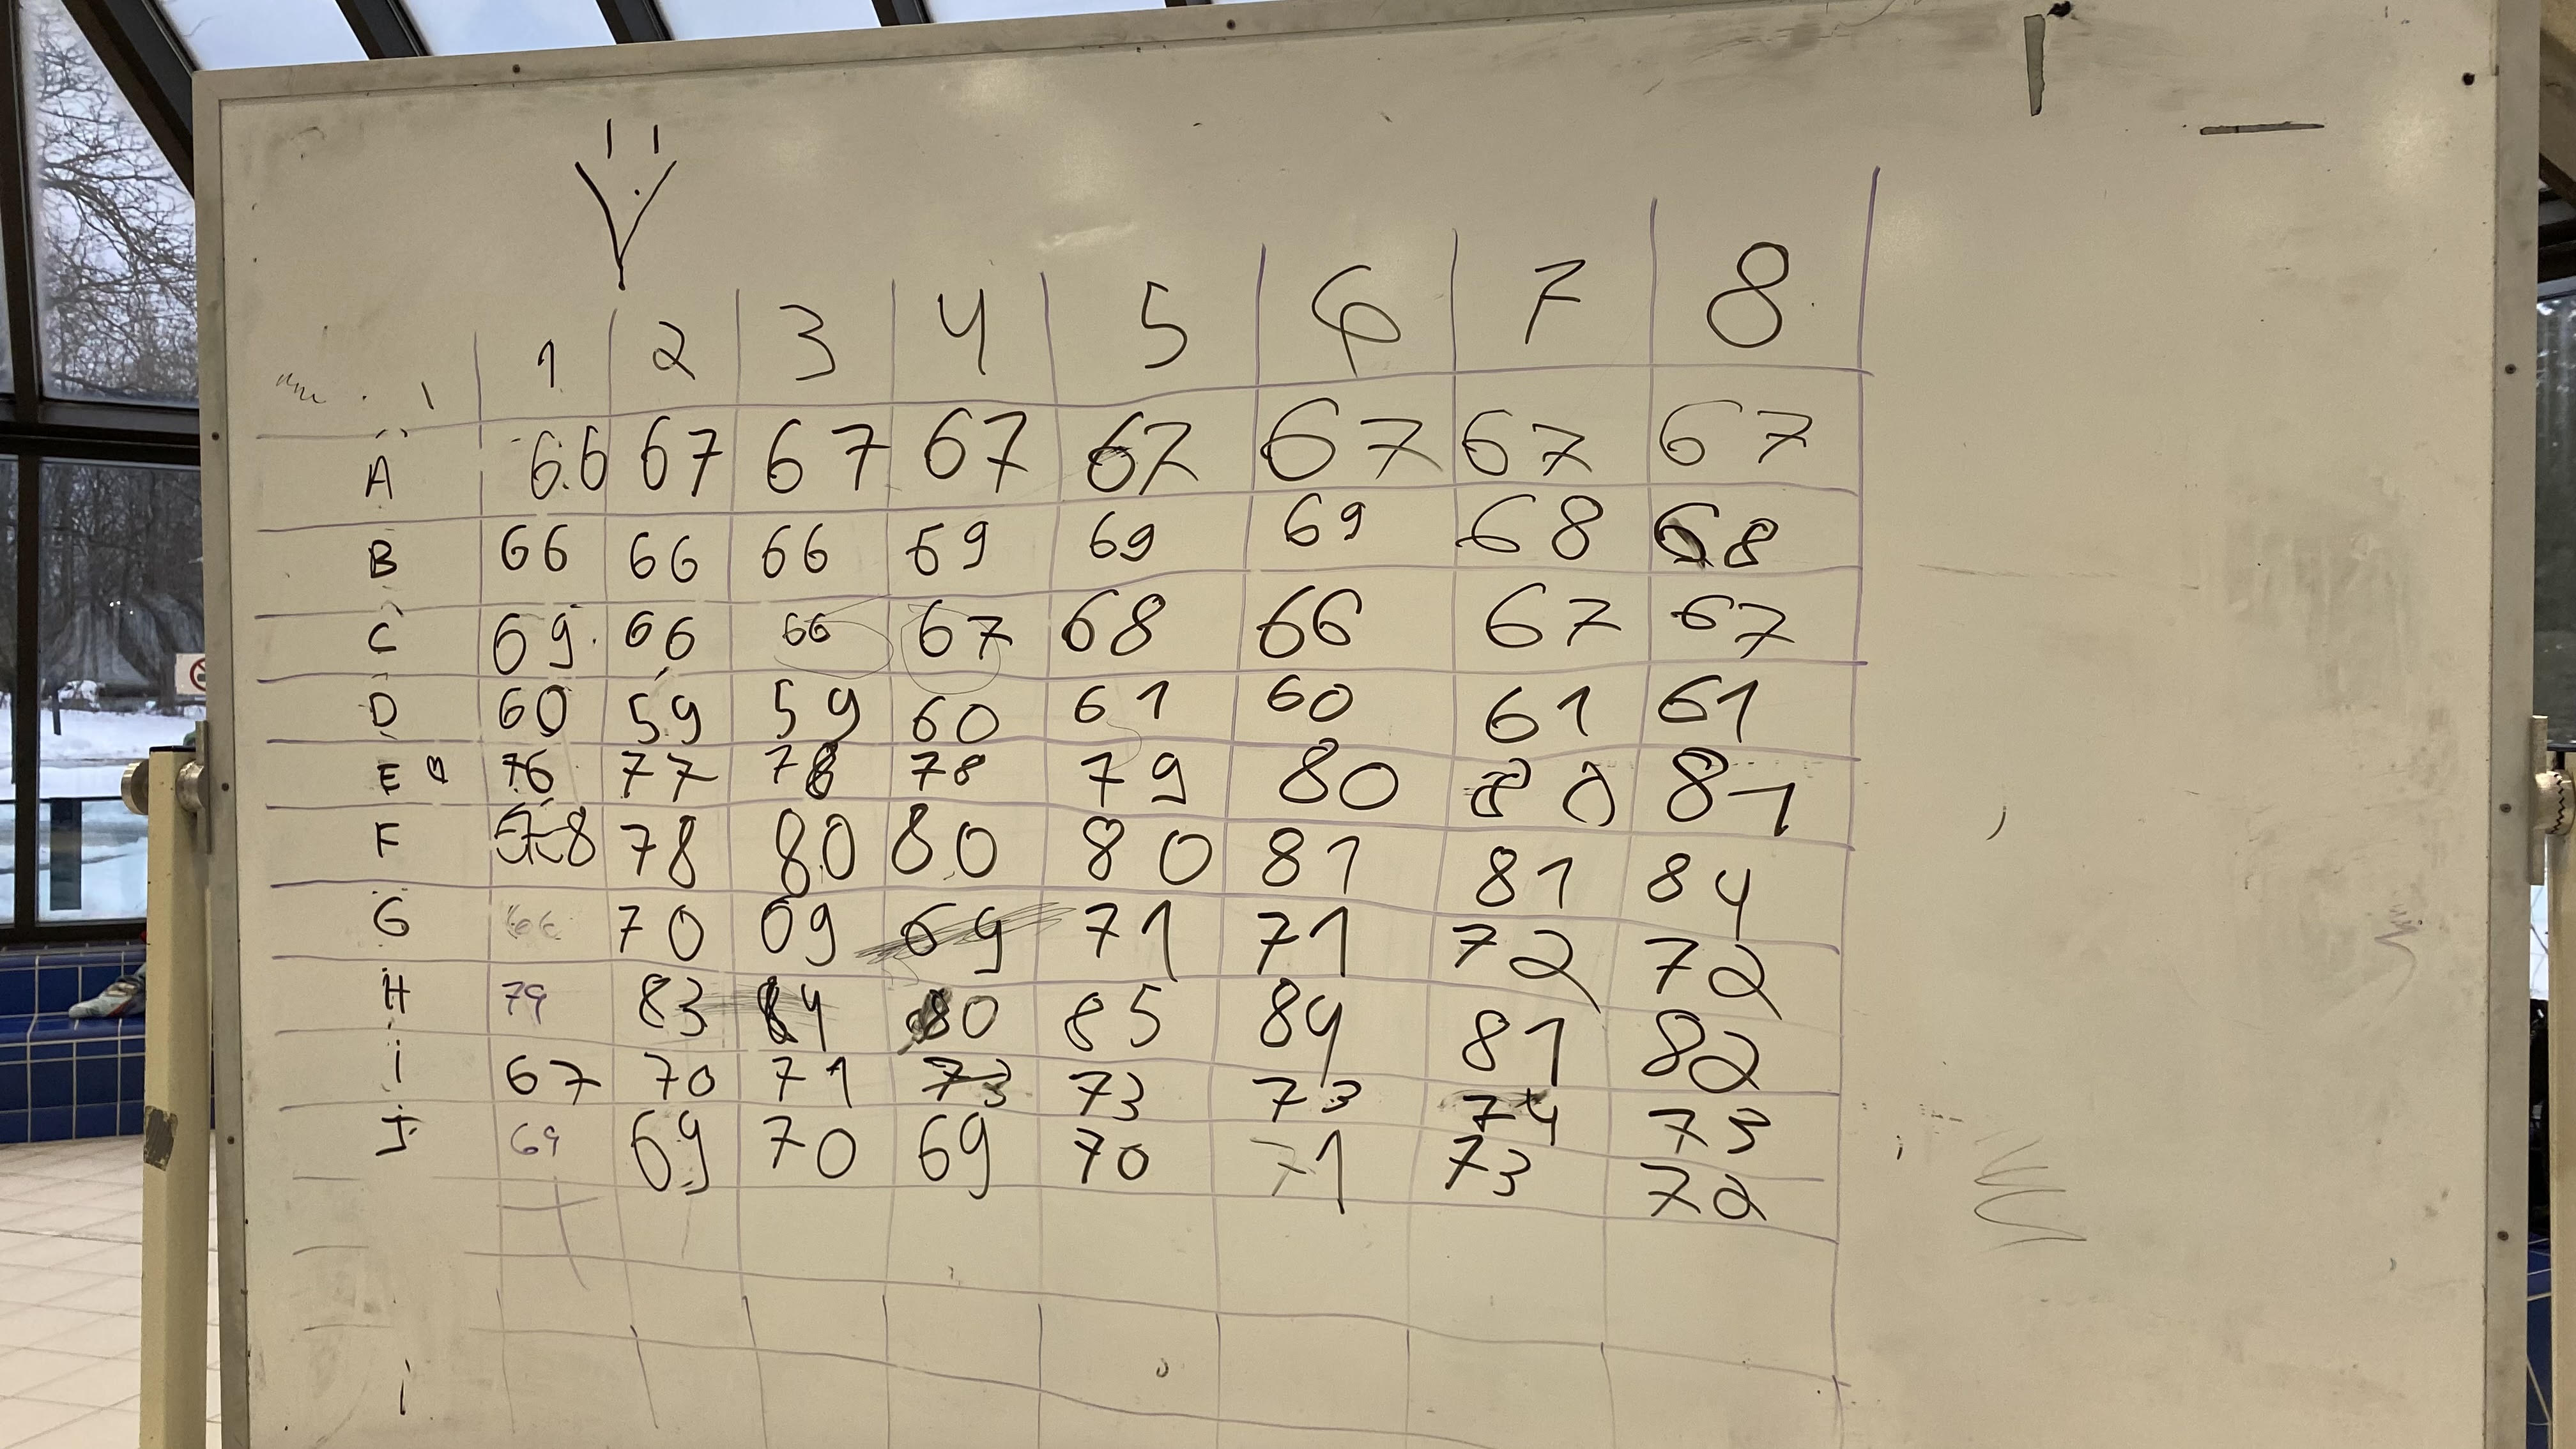 1 2 3 4 5 6 7 8
A 66 67 67 67 67 67 67 67
B 66 66 66 69 69 69 68 68
C 69 66 66 67 68 66 67 67
D 60 59 59 60 61 60 61 61
E 76 77 78 78 79 80 80 81
F 78 78 80 80 80 81 81 84
G 66 70 69 69 71 71 72 72
H 79 83 84 80 85 84 81 82
i 67 70 71 73 73 73 74 73
J 69 69 70 69 70 71 73 72